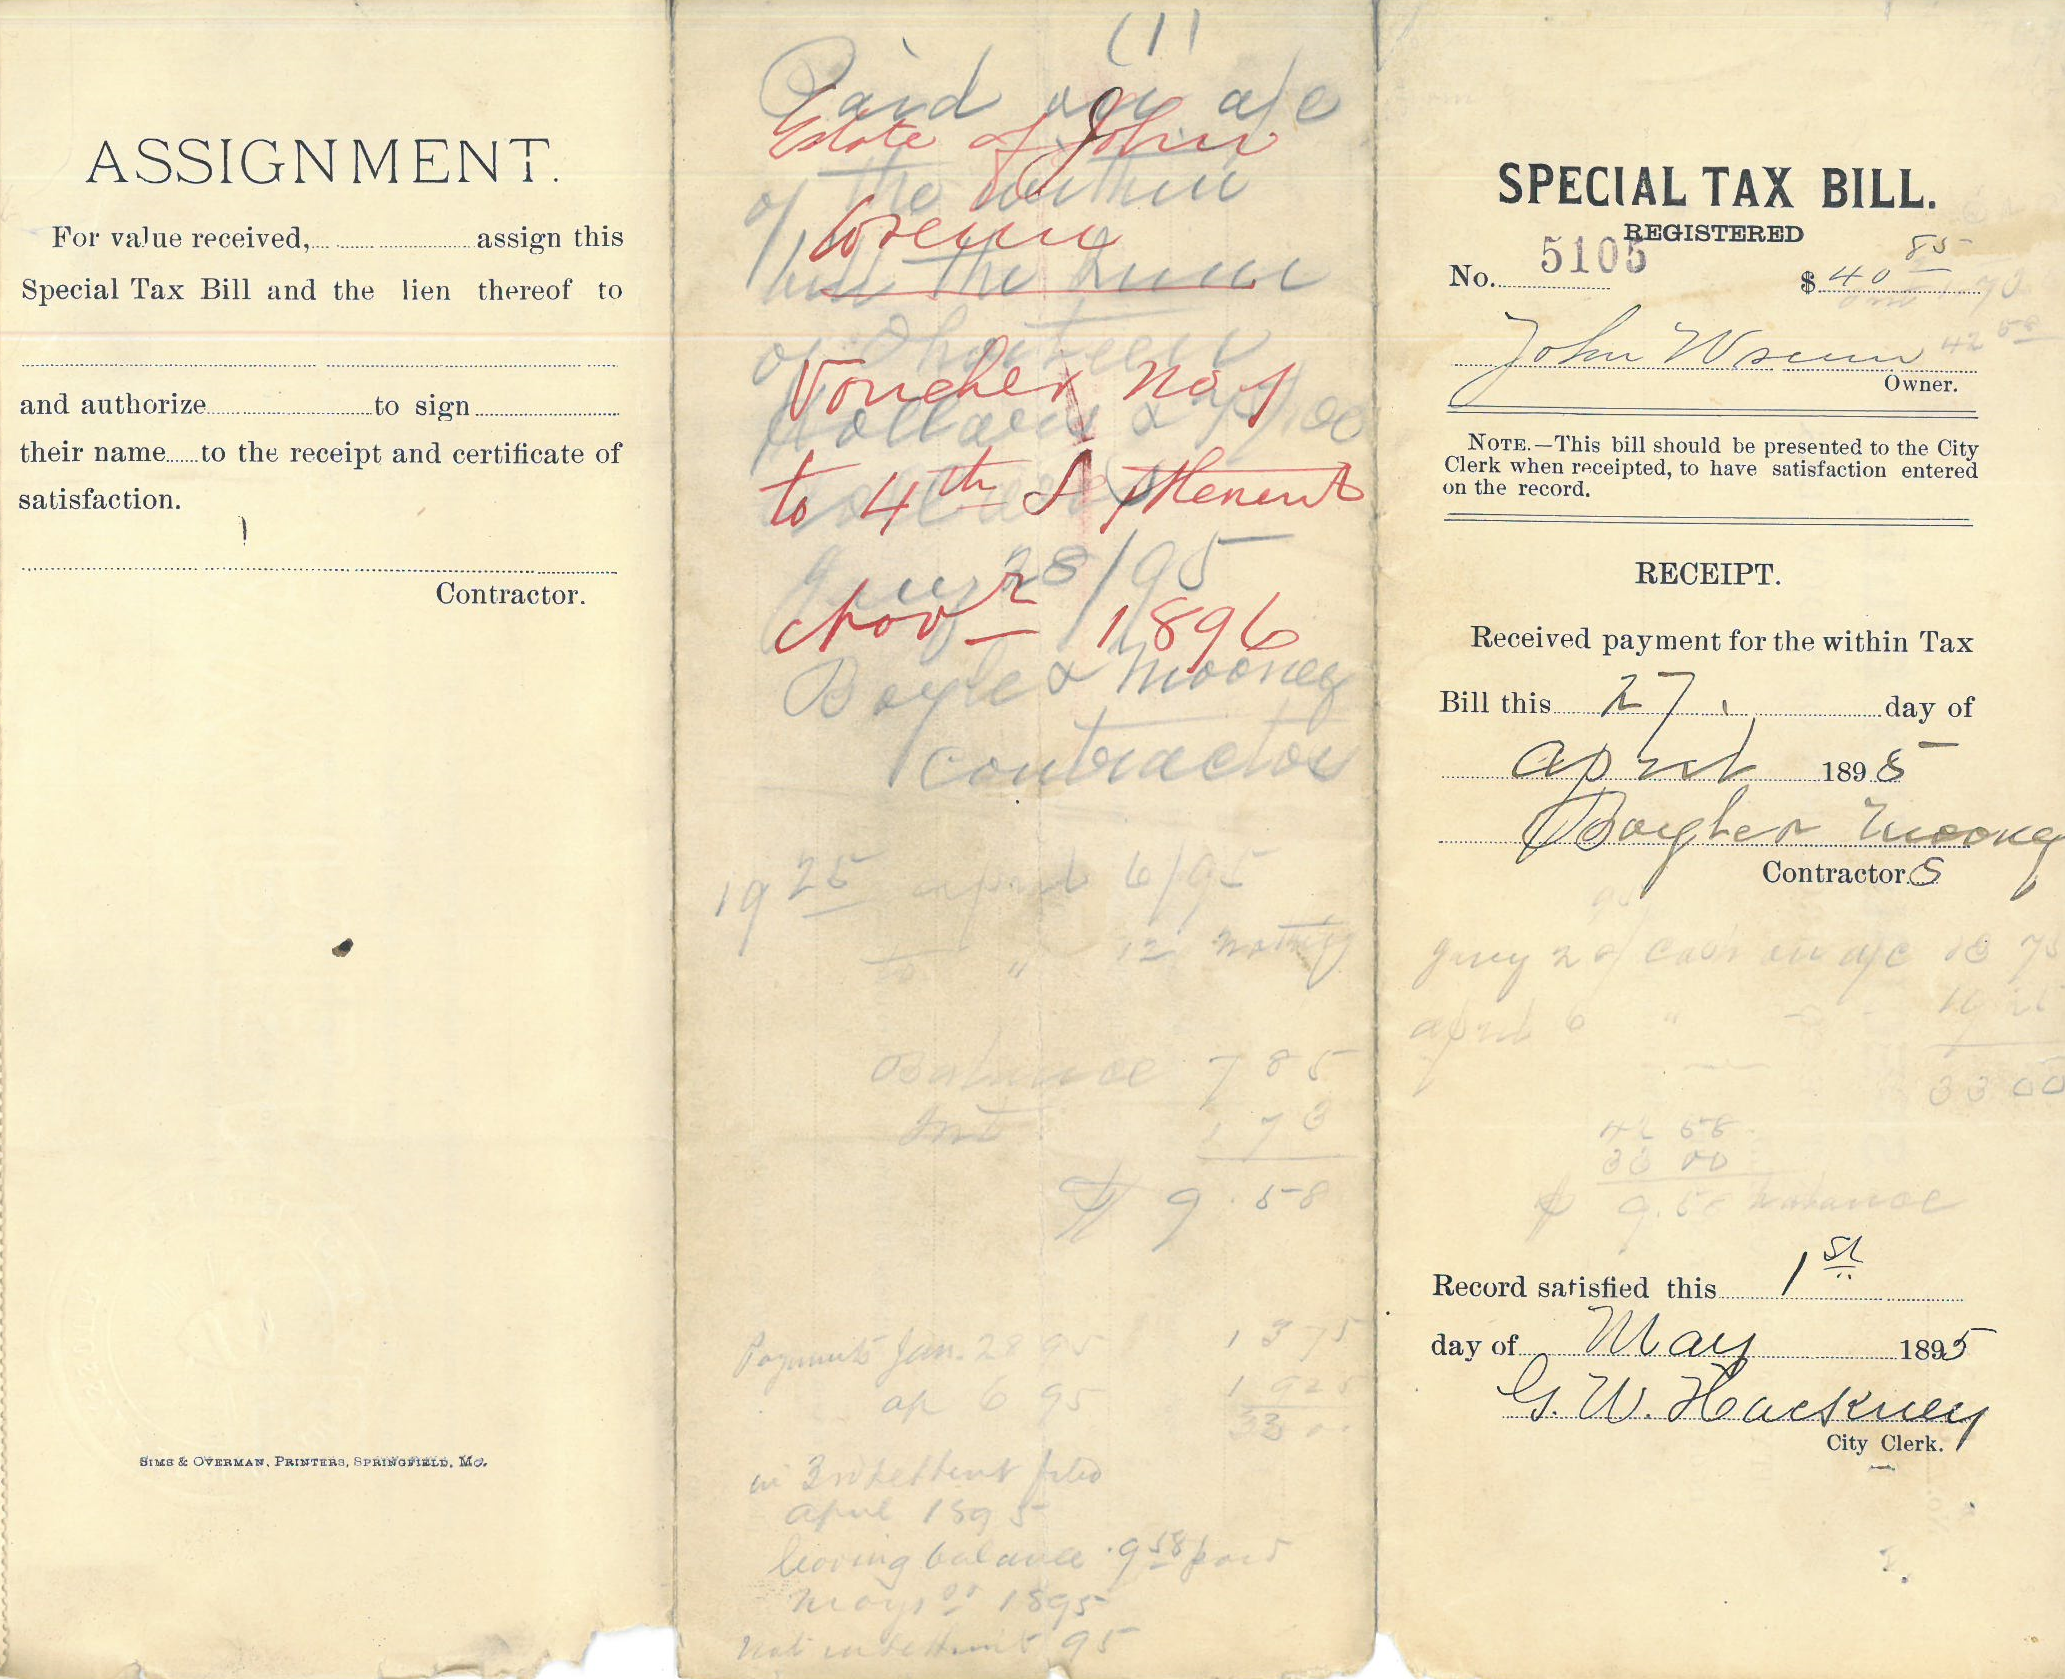 ASSIGNMENT.
For value received, assign this
Special Tax Bill and the lien thereof to
and authorize to sign
their name to the receipt and certificate of
satisfaction.
Contractor.
SIMS & OVERMAN, PRINTERS, SPRINGFIELD, MO.
(1)
Paid on a/c
Estate of John
of the within
Wrenn
bill the sum
of Thirteen
Voucher No 1
Dollars & 75/100
to 4th Settlement
Jany 28/95
Novr 1896
Boyle & Mooney
contractor
19 25 april 6/95
to " 12 nothing
Balance 7 85
Int 1 73
$ 9.58
Payments Jan. 28 95 13 75
ap 6 95 19 25
33 00
in 3rd settlement filed
april 1895
leaving balance 9 58 paid
May 1895
not in settlment 95
SPECIAL TAX BILL.
REGISTERED
No. 5105 $ 40 85
int 1.73
John Wrenn 42 58
Owner.
NOTE.—This bill should be presented to the City
Clerk when receipted, to have satisfaction entered
on the record.
RECEIPT.
Received payment for the within Tax
Bill this 27 day of
april 1895
Boyle & Mooney
Contractors
Jany 28/95 Cash on a/c 13 75
april 6 " 19 25
33 00
42 58
33 00
$ 9.58 balance
Record satisfied this 1st
day of May 1895
G. W. Hackney
City Clerk.